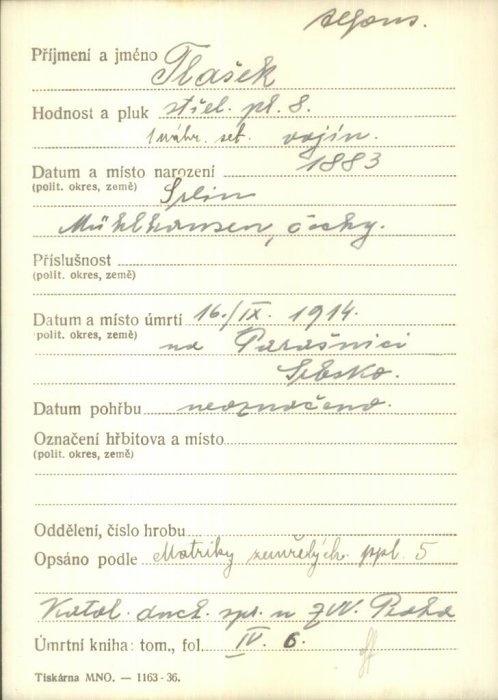 Alfons.
Příjmení a jméno Tlašek
Hodnost a pluk střel. pl. 8.
1 náhr. set. vojín.
Datum a místo narození 1883
(polit. okres, země) Srlin
Mühlhausen, čechy.
Příslušnost
(polit. okres, země)
Datum a místo úmrtí 16./IX. 1914.
polit. okres, země) na Parašnici
Srbsko.
Datum pohřbu neoznačeno.
Označení hřbitova a místo
(polit. okres, země)
Oddělení, číslo hrobu
Opsáno podle Matriky zemřelých ppl. 5
Katol. duch. spr. u ZVV. Praha
Úmrtní kniha: tom., fol. IV. 6.
Tiskárna MNO. — 1163-36.